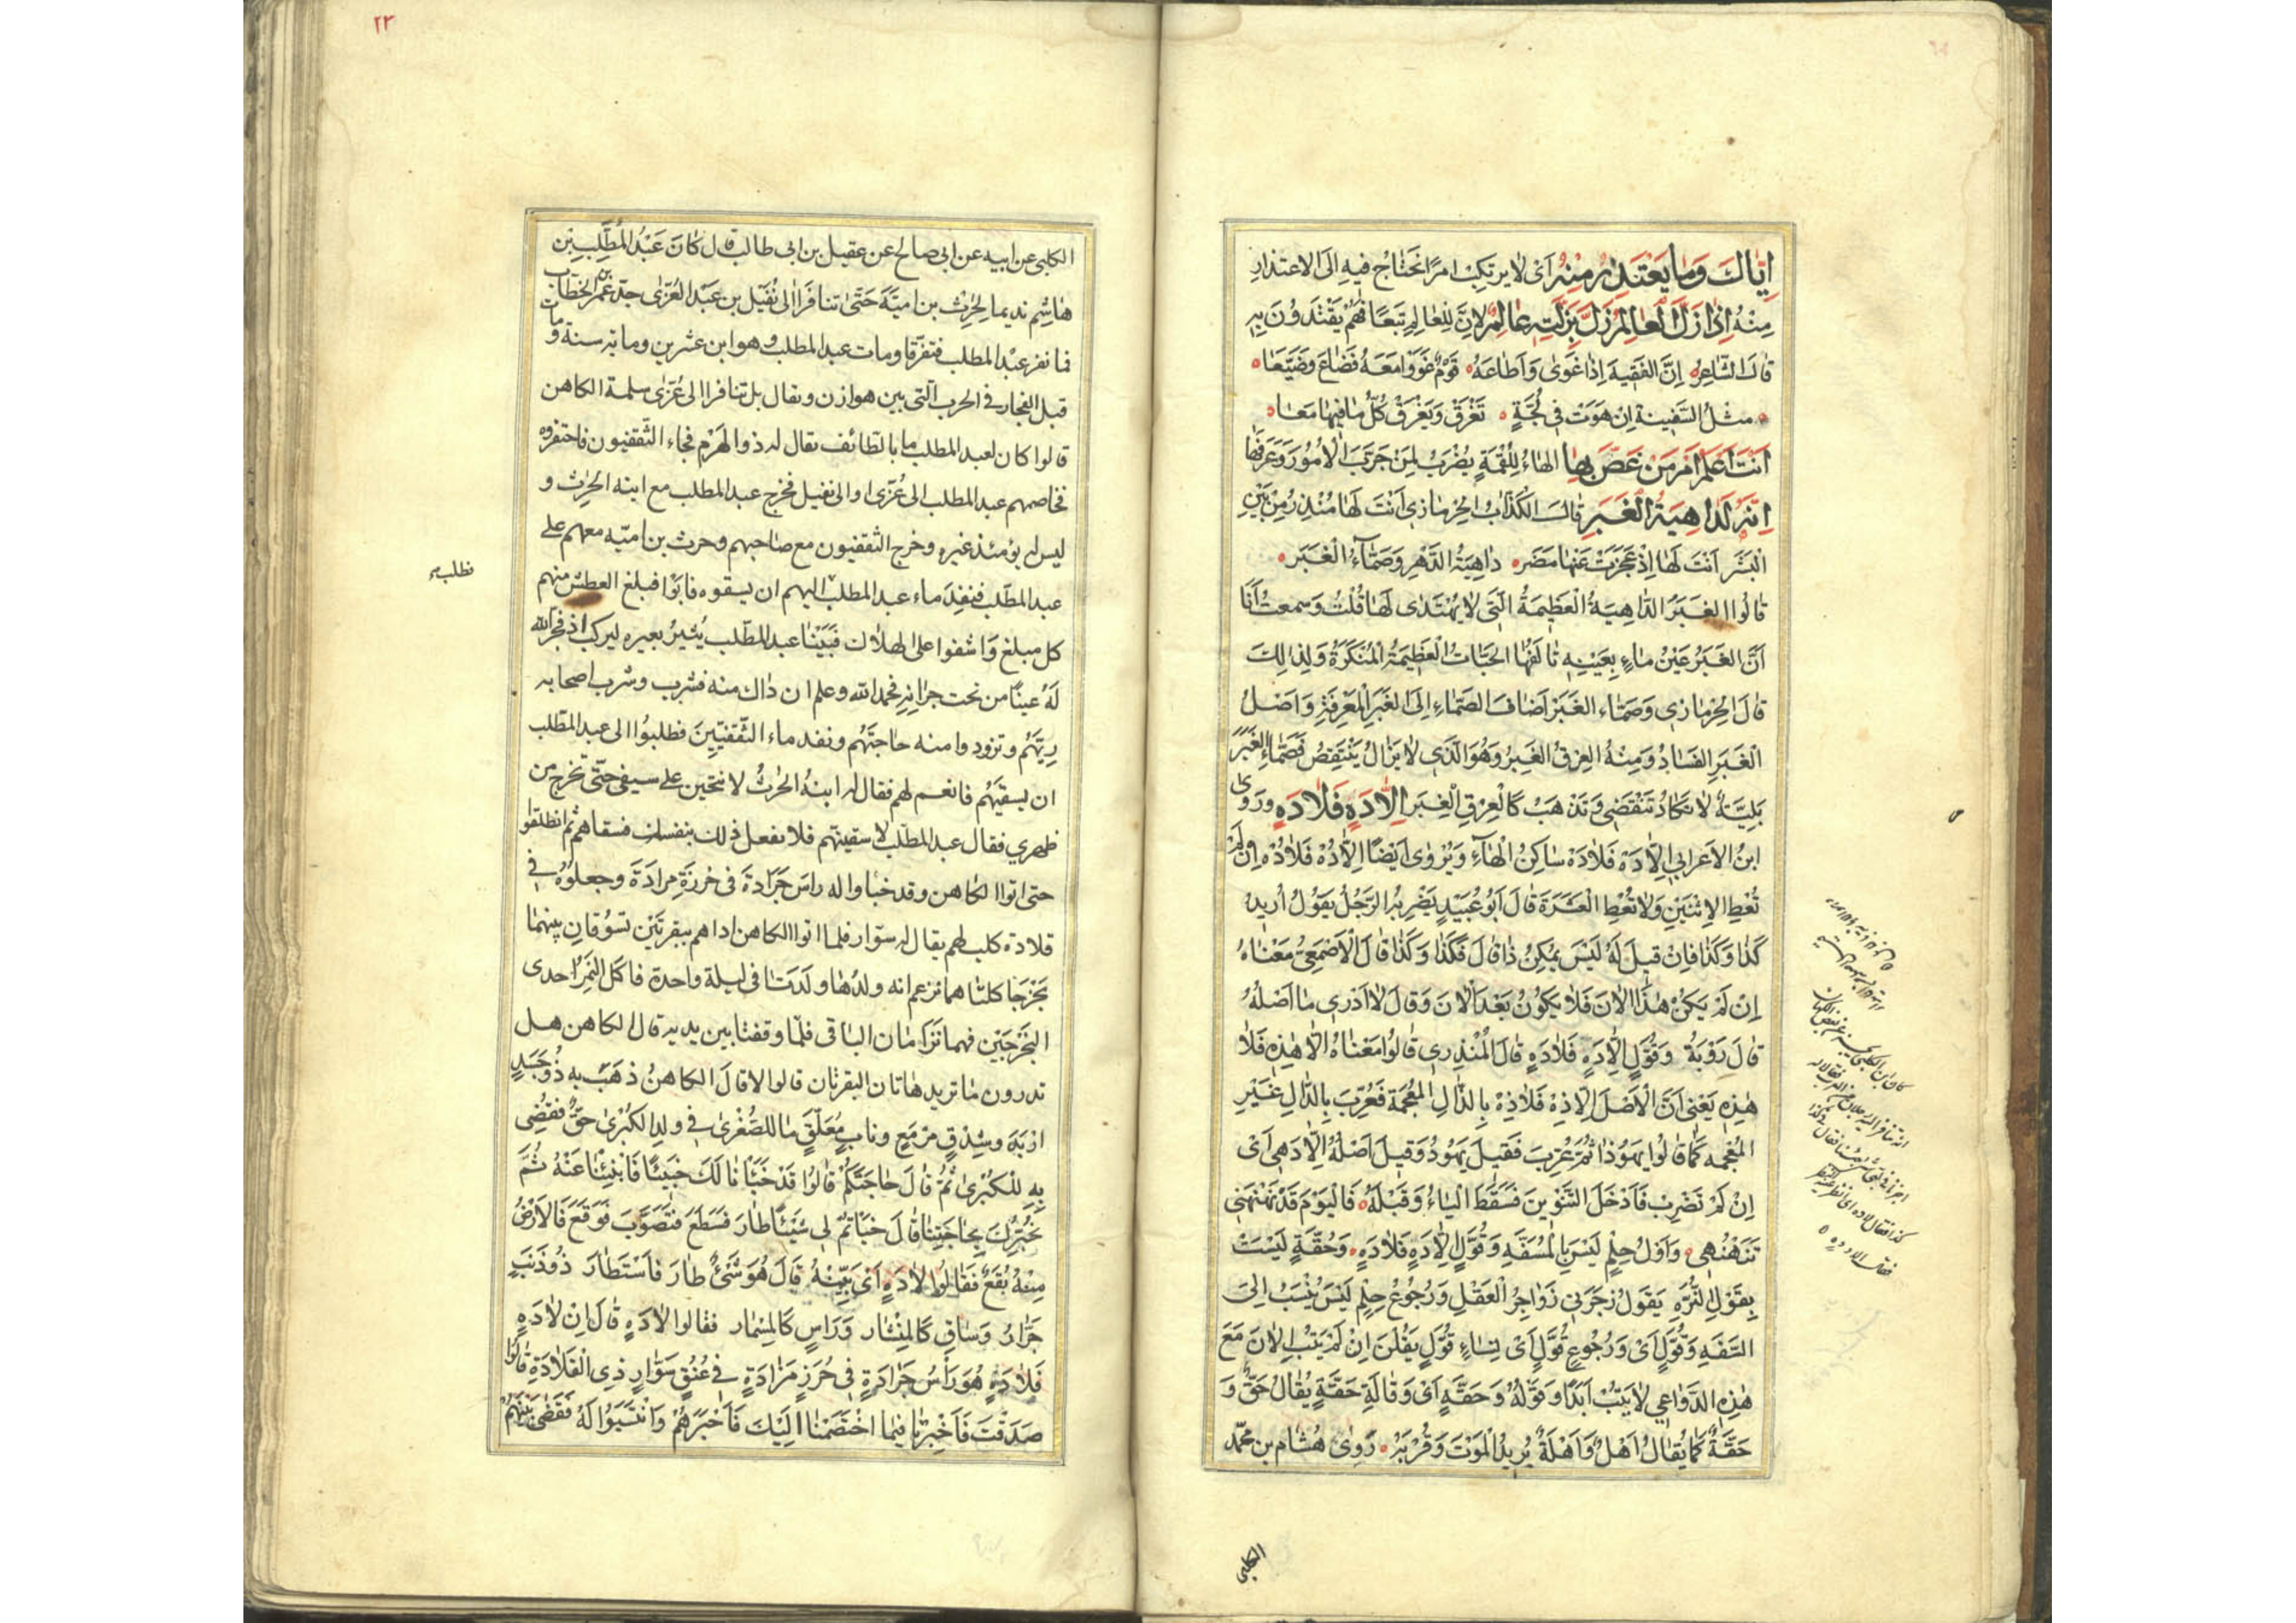 اِيّاكَ وَمٰا يَعْتَذَرُ مِنْهُ اَىْ لٰا يرتَكِبْ امرًا تَحَتٰاجُ فيهِ اِلَى الاعتذارِ
مِنْهُ اِذٰا زَلَّ العٰالِمُ زَلَّ بِزَلَّتِهِ عٰالَمٌ لِانَّ لِلْعٰالِمِ تَبَعًا فَهُمْ يَقْتَدُونَ بِهِ
قٰالَ الشّاعِرُ اِنَّ الفَقيهَ اِذٰا غَوَىٰ وَاَطٰاعَهُ قَوْمٌ غَوَوْا مَعَهُ فَضٰاعَ وَضَيَّعَا
مثلُ السَّفِينةِ اِنْ هَوَتْ فِي لُجَّةٍ تَغْرَقْ وَيَغْرَقْ كُلُّ مٰا فيهٰا مَعَا
اَنْتَ اَعْلَمُ اَمْ مَنْ غَصَّ بِهٰا الهٰاءُ لِلُّقْمَةِ يُضْرَبُ لِمَنْ جَرَّبَ الْاُمُورَ وَعَرَفَهٰا
اِنَّهُ لَدٰاهِيَةُ الْغَبَرِ قٰالَ الكَذّابُ الحِرْمٰازِي اَنْتَ لَهٰا مُنْذِرُ مِنْ بَيْنِ
الْبَشَرِ اَنْتَ لَهٰا اِذْ عَجَزَتْ عَنْهٰا مُضَر دٰاهِيَةُ الدَّهْرِ وَصَمّٰاءُ الْغَبَر
قٰالُوا الغَبَرُ الدّٰاهِيَةُ الْعَظِيمَةُ الَّتِي لٰا يُهْتَدٰى لَهٰا قُلْتُ وَسَمِعتُ اَنَا
اَنَّ الغَبَرَ عَيْنُ مٰاءٍ بِعَيْنِهِ تَالَفُهَا الحَيّٰاتُ الْعَظِيمَةُ الْمُنْكَرَةُ وَلِذٰلِكَ
قٰالَ الحِرْمٰازِي وَصَمّٰاءُ الغَبَرْ اَضٰافَ الصَّمّٰاءَ اِلَى الغَبَرِ الْمَعْرِفَةِ وَاَصْلُ
الْغَبَرِ الفَسٰادُ وَمِنْهُ العِرْقُ الغَبِرُ وَهُوَ الَّذِي لٰا يَزٰالُ يَنْتَقِضُ فَصَمّٰاءُ الْغَبَرِ
بَلِيَّةٌ لٰا تَكٰادُ تَنْقَضِي وَتَذْهَبُ كَالْعِرْقِ الْغَبِر اِلّٰا دَهٍ فَلٰا دَهٍ ورَوىٰ
ابنُ الاَعرٰابي اِلّٰا دَهْ فَلٰا دَهْ سٰاكِنُ الْهٰاءِ وَيُرْوٰى اَيْضًا اِلّٰا دُهْ فَلٰا دُهْ اِنْ لَمْ
تُعْطِ الاِثْنَيْنِ وَلٰا تُعْطِ الْعَشَرَةَ قٰالَ اَبُو عُبَيْدٍ يَضْرِبُهُ الرَّجُلُ يَقُولُ اُرِيدُ
كَذٰا وَكَذٰا فَاِنْ قِيلَ لَهُ لَيْسَ يُمْكِنُ ذٰا قٰالَ فَكَذٰا وَكَذٰا قٰالَ الْاَصْمَعِيُّ مَعْنٰاهُ
اِنْ لَمْ يَكُنْ هٰذَا الْاٰنَ فَلٰا يَكُونُ بَعْدَ الْاٰنَ وَقٰالَ لٰا اَدْرِي مٰا اَصْلُهُ
قٰالَ رُوبَةُ وَقُوَّلٍ اِلّٰا دَهٍ فَلٰا دَهٍ قٰالَ الْمُنْذِرِي قٰالُوا مَعْنٰاهُ اِلّٰا هٰذِهِ فَلٰا
هٰذِهِ يَعْنِي اَنَّ الْاَصْلَ اِلّٰا ذِهْ فَلٰا ذِهْ بِالذّٰالِ الْمُعْجَمَةِ فَعُرِّبَ بِالدّٰالِ غَيْرِ
المُعْجَمَه كَمٰا قٰالُوا يَهُوذٰا ثُمَّ عُرِّبَ فَقِيلَ يَهُودُ وَقِيلَ اَصْلُهُ اِلّٰا دَهِي اَىْ
اِنْ لَمْ تَضْرِبْ فَاَدْخَلَ التَّنْوِينَ فَسَقَطَ الْيٰاءُ وَقَبْلَهُ فَالْيَوْمَ قَدْ نَهْنَهَنِي
تَنَهْنُهِي وَاَوْلُ حِلْمٍ لَيْسَ بِالْمُسَفَّهِ وَقُوَّلٍ اِلّٰا دَهٍ فَلٰا دَهٍ وَحُقَّةٍ لَيْسَتْ
بِقَوْلِ التُّرَّهِ يَقُولُ زَجَرَنِي زَوٰاجِرُ الْعَقْلِ وَرُجُوعُ حِلْمٍ لَيْسَ يُنْسَبُ اِلَى
السَّفَهِ وَقُوَّلٍ اَىْ وَرُجُوعِ قُوَّلٍ اَىْ نِسٰاءٍ قُوَّلٍ يَقُلْنَ اِنْ لَمْ يَتُبْ الاٰنَ مَعَ
هٰذِهِ الدَّوٰاعِي لٰا يَتُبْ اَبَدًا وَقَوْلُهُ وَحَقَّةٍ اَىْ وَقٰالَةٍ حَقَّةٍ يُقٰالُ حَقٌّ وَ
حَقَّةٌ كَمٰا يُقٰالُ اَهْلٌ وَاَهْلَةٌ يُرِيدُ الْمَوْتَ وَقُرْبَهُ رَوىٰ هُشٰام بن محمّد
الكلبى
٢٣
الكلبى عن ابيه عن ابى صالح عن عقيل بن ابى طالب قال كٰانَ عَبْدُ المُطَّلِبِ بْن
هٰاشِم نديما لحرث بن اميّة حَتّىٰ تنافَرَا الى نُفَيْل بن عَبْد العُزّىٰ جدّ عُمَر بن الخطاب
فما نفر عَبْد المطلب فتفرّقا ومات عبد المطلب وهو ابن عشرين وماية سنة ومات
قبل الفجار فى الحرب الّتى بين هوازن ويقال بل تنافرا الى عُزّىٰ سلمة الكاهن
قالوا كان لعبد المطلب ما بالطائف يقال له ذو الهَرِم فجاء الثقفيون فاحتفروه
فخاصمهم عبد المطلب الى عُزّى او الى نفيل فخرج عبد المطلب مع ابنه الحٰرث و
ليس له يومئذ غيره وخرج الثقفيون مع صٰاحبهم وحرث بن اميّه معهم على
عبد المطّلب فنفِدَ ماء عبد المطلب اليهم ان يسقوه فابَوْا فبلغ العطش منهم
فطلب
كل مبلغ وَاشفوا على الهلاك فبَيْنٰا عبد المطّلب يُثيرُ بعيره ليركب اذ فجر الله
لَهُ عينًا من تحت جِرٰانِهِ فحمد الله وعلم ان ذٰلك منه فشرب وشرب اصحابه
رِيَّهُم وتزودوا منه حٰاجَتَهُم ونفد ماء الثَّقفيّينَ فطلبُوا الى عبد المطّلب
ان يسقيَهُم فانعم لهم فقال له ابنهُ الحٰرثُ لانحنين على سيفى حتّى تخرج من
ظهري فقال عبد المطّلب لاسقينّهم فلا تفعل ذلك بنفسك فسقاهم ثم انطلقوا
حتى اتوا الكاهن وقد خبأوا له راسَ جَرٰادة فى خرزةِ مزادَة وجعلوُهُ في
قلادة كلب لهم يقال له سوّار فلما اتوا الكاهن اذا هم ببقرتَيْن تسُوقٰان بينهما
بَخْزجًا كلتٰاهما تزعم انه ولدُهٰا ولدتا فى ليلة واحدة فاكل النَمِرُ احدى
البَخْزجَيْن فهما تَرْأمان البٰاقى فلمّا وقفتا بين يديه قال الكاهن هل
تدرون مٰا تريد هاتان البقرتان قالوا لا قال الكاهنُ ذهَبَ به ذُو جَسَدٍ
اَرْبَدَ وشِدْقٍ مرْمَعٍ ونابٍ مُعَلَّقٍ مٰا للصُّغْرىٰ في ولدِ الكُبْرىٰ حَقٌّ فقُضِى
بِهِ لِلْكُبْرىٰ ثُمَّ قٰالَ حٰاجَتَكُمْ قٰالُوا قَدْ خَبَأْنٰا لَكَ خَبيئًا فَانْبِئْنٰا عَنْهُ ثُمَّ
نُخْبِرُكَ بِحٰاجَتِنٰا قٰالَ خَبَأْتُمْ لِى شَيْئًا طٰارَ فَسَطَعَ فتَصَوَّبَ فَوَقَعَ فَالْاَرْضُ
مِنْهُ بُقَعٌ فَقٰالُوا لٰا دَهٍ اَىْ بَيِّنْهُ قٰالَ هُوَ شَيْءٌ طٰارَ فاَسْتَطٰارَ ذُو ذَنَبٍ
جَرّٰارٍ وَسٰاقٍ كَالْمِنْشٰار وَرَاسٍ كَالْمِسْمار فقٰالوا لٰا دَهٍ قٰالَ اِنْ لٰا دَهٍ
فَلٰا دَهٍ هُوَ رَأْسُ جَرٰادَةٍ فى خُرَزِ مَزٰادَةٍ في عُنُقِ سَوّٰارٍ ذِى الْقَلٰادَةِ قٰالُوا
صَدَقْتَ فَاَخْبِرْنٰا فيمٰا اخْتَصَمْنٰا اِلَيْكَ فَاَخْبَرَهُمْ وَانْتَسَبُوا لَهُ فَقَضىٰ بَيْنَهُمْ